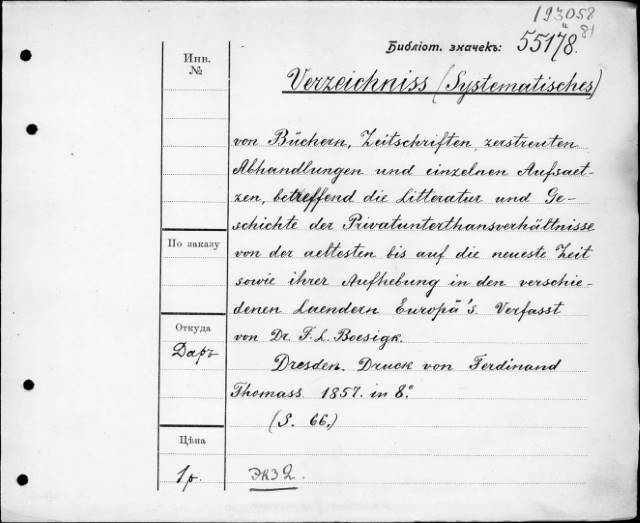 193058
81
Библіот. значекъ: 55178.
Инв.
№
Verzeichniss (Systematisches)
von Büchern, Zeitschriften, zerstreuten
Abhandlungen und einzelnen Aufsaet-
zen, betreffend die Litteratur und Ge-
schichte der Privatunterthansverhältnisse
По заказу
von der aeltesten bis auf die neueste Zeit
sowie ihrer Aufhebung in den verschie-
denen Laendern Europä's. Verfasst
Откуда
Даръ
von Dr. F. L. Boesigk.
Dresden. Druck von Ferdinand
Thomass. 1857. in 8°
(S. 66.)
Цѣна
1 р.
экз 2.